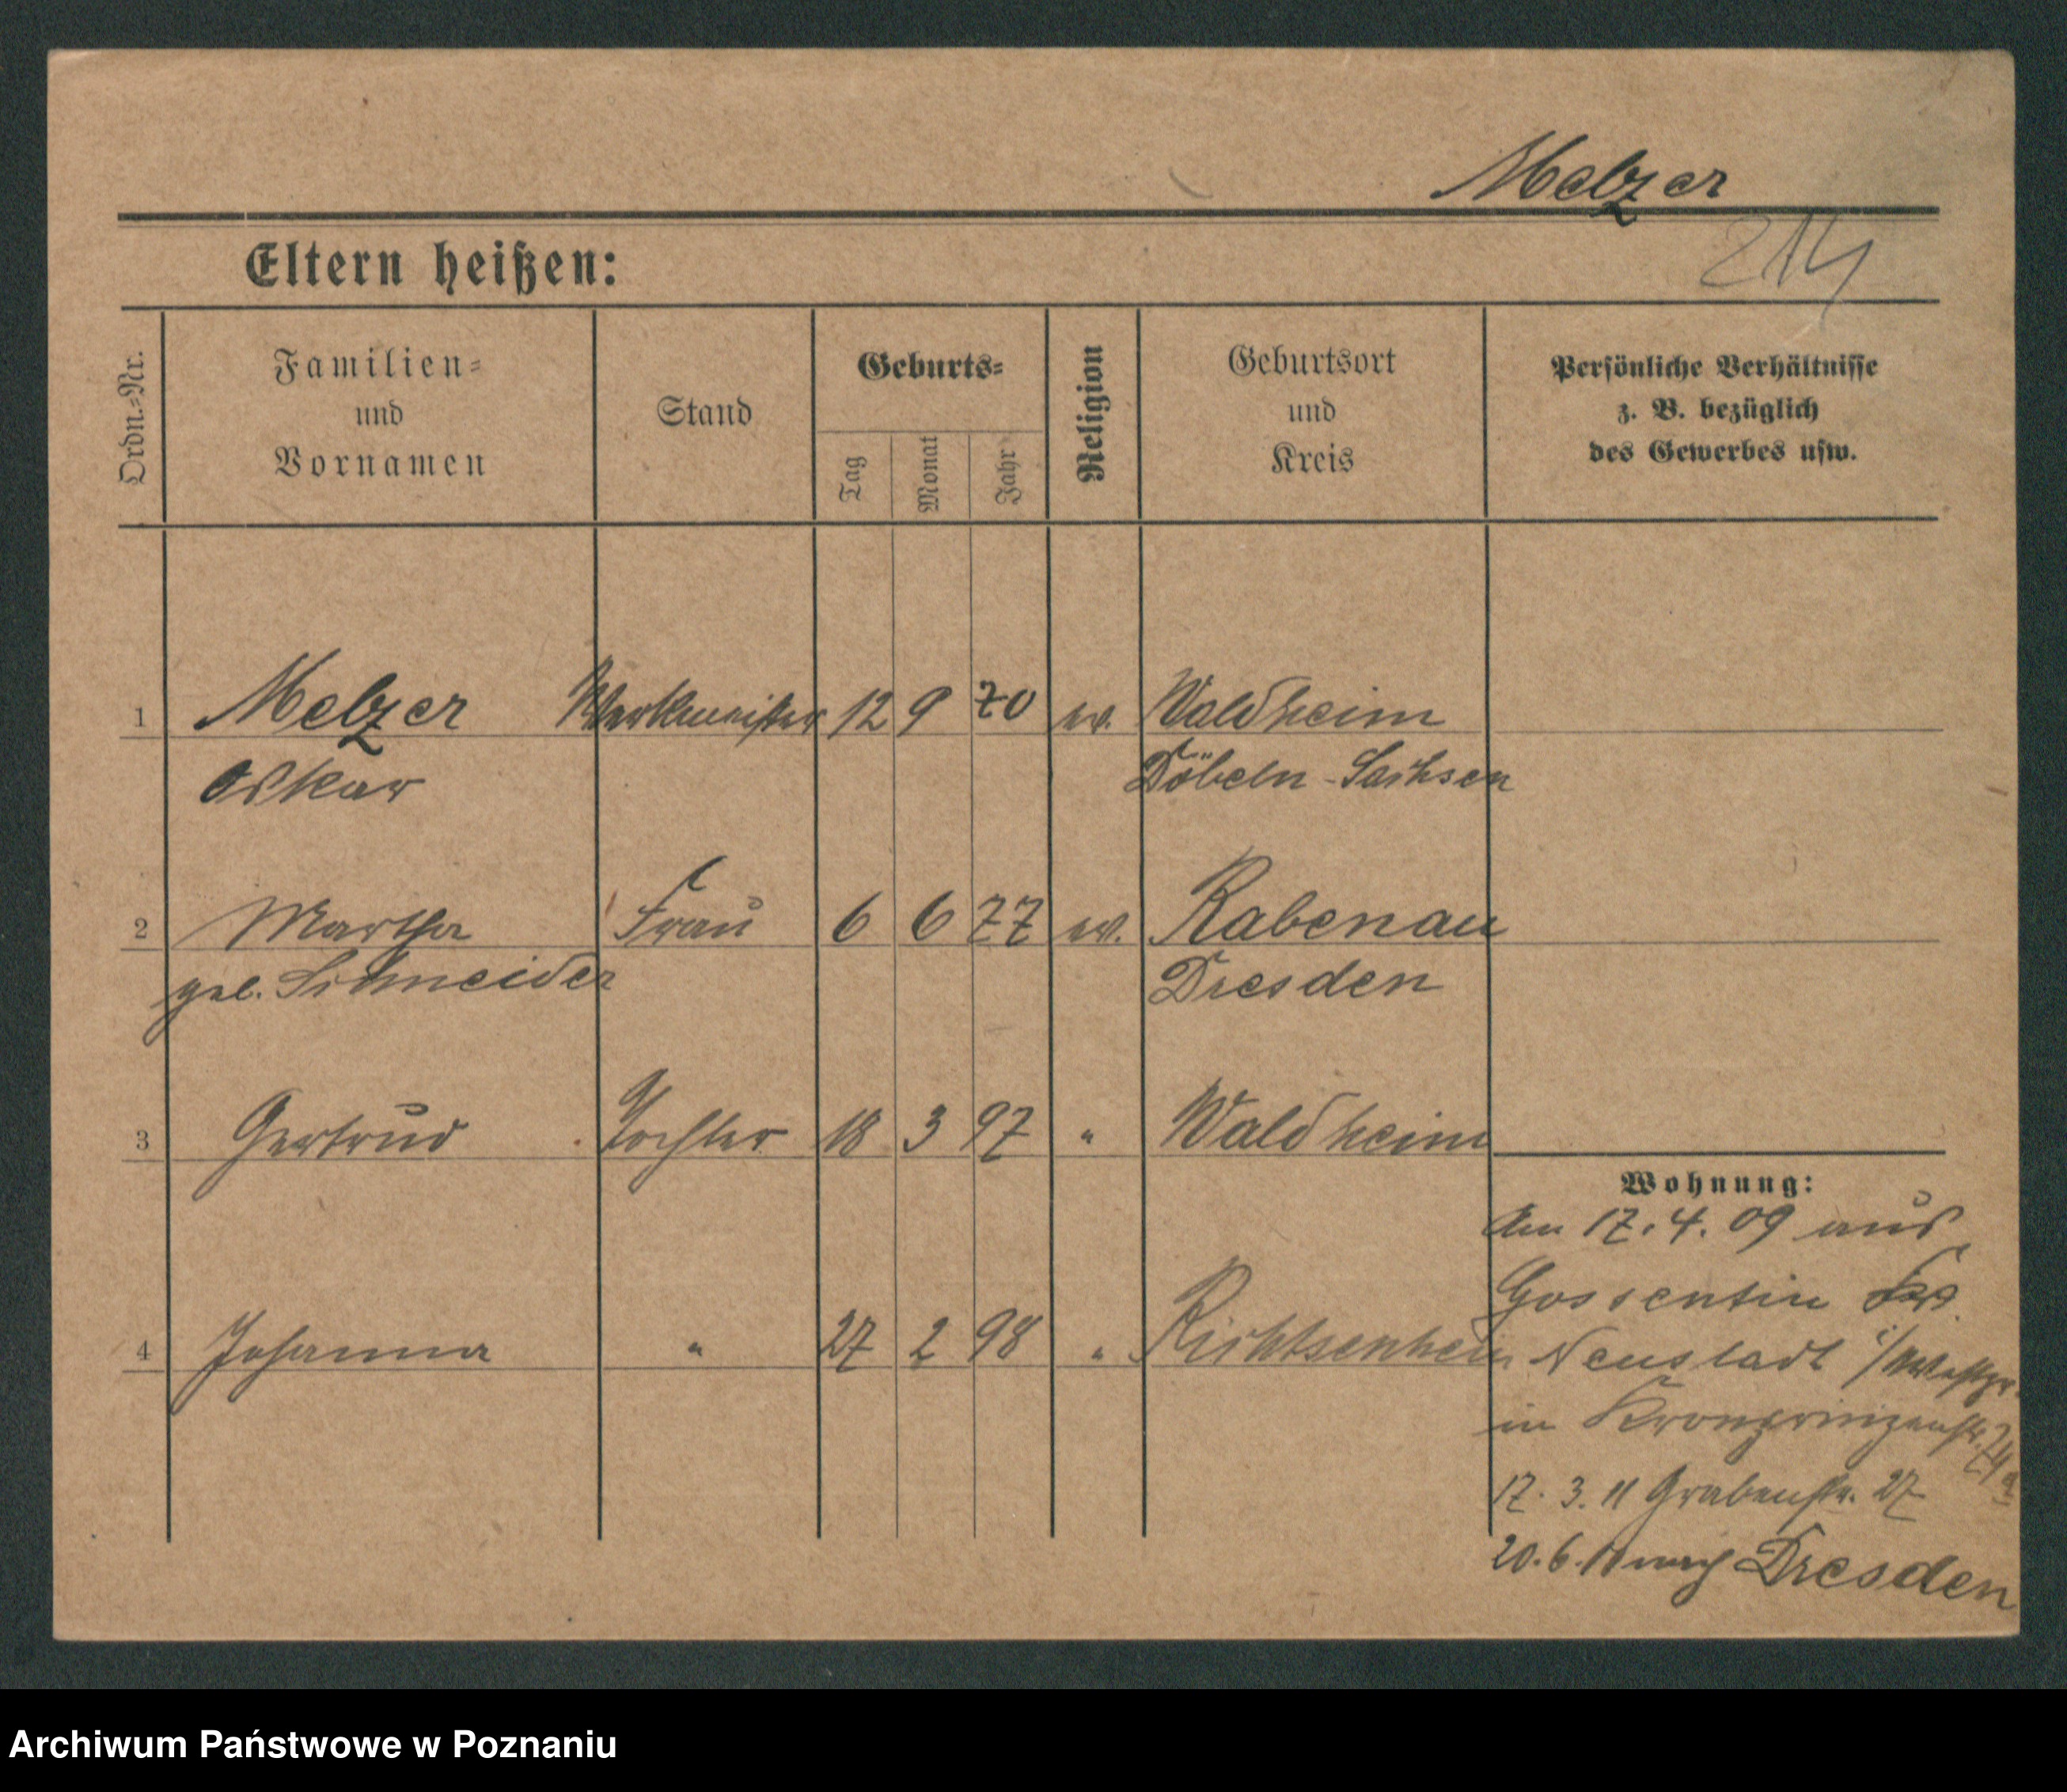 Melzer
214
Eltern heißen:
Ordn.-Nr.
Familien- und Vornamen
Stand
Geburts-
Tag
Monat
Jahr
Religion
Geburtsort und Kreis
Persönliche Verhältnisse
z. B. bezüglich
des Gewerbes usw.
1 Melzer Werkmeister 12 9 70 ev. Waldheim
Oskar Döbeln - Sachsen
2 Martha Frau 6 6 77 ev. Rabenau
geb. Schneider Dresden
3 Gertrud Tochter 18 3 97 " Waldheim
Wohnung:
Am 17. 4. 09 aus
Gossentin Krs.
4 Johanna " 27 2 98 "
Neustadt i/Westpr.
in Kronprinzenstr.
17. 3. 11 Grabenstr. 27
20. 6. 11 nach Dresden
Archiwum Państwowe w Poznaniu